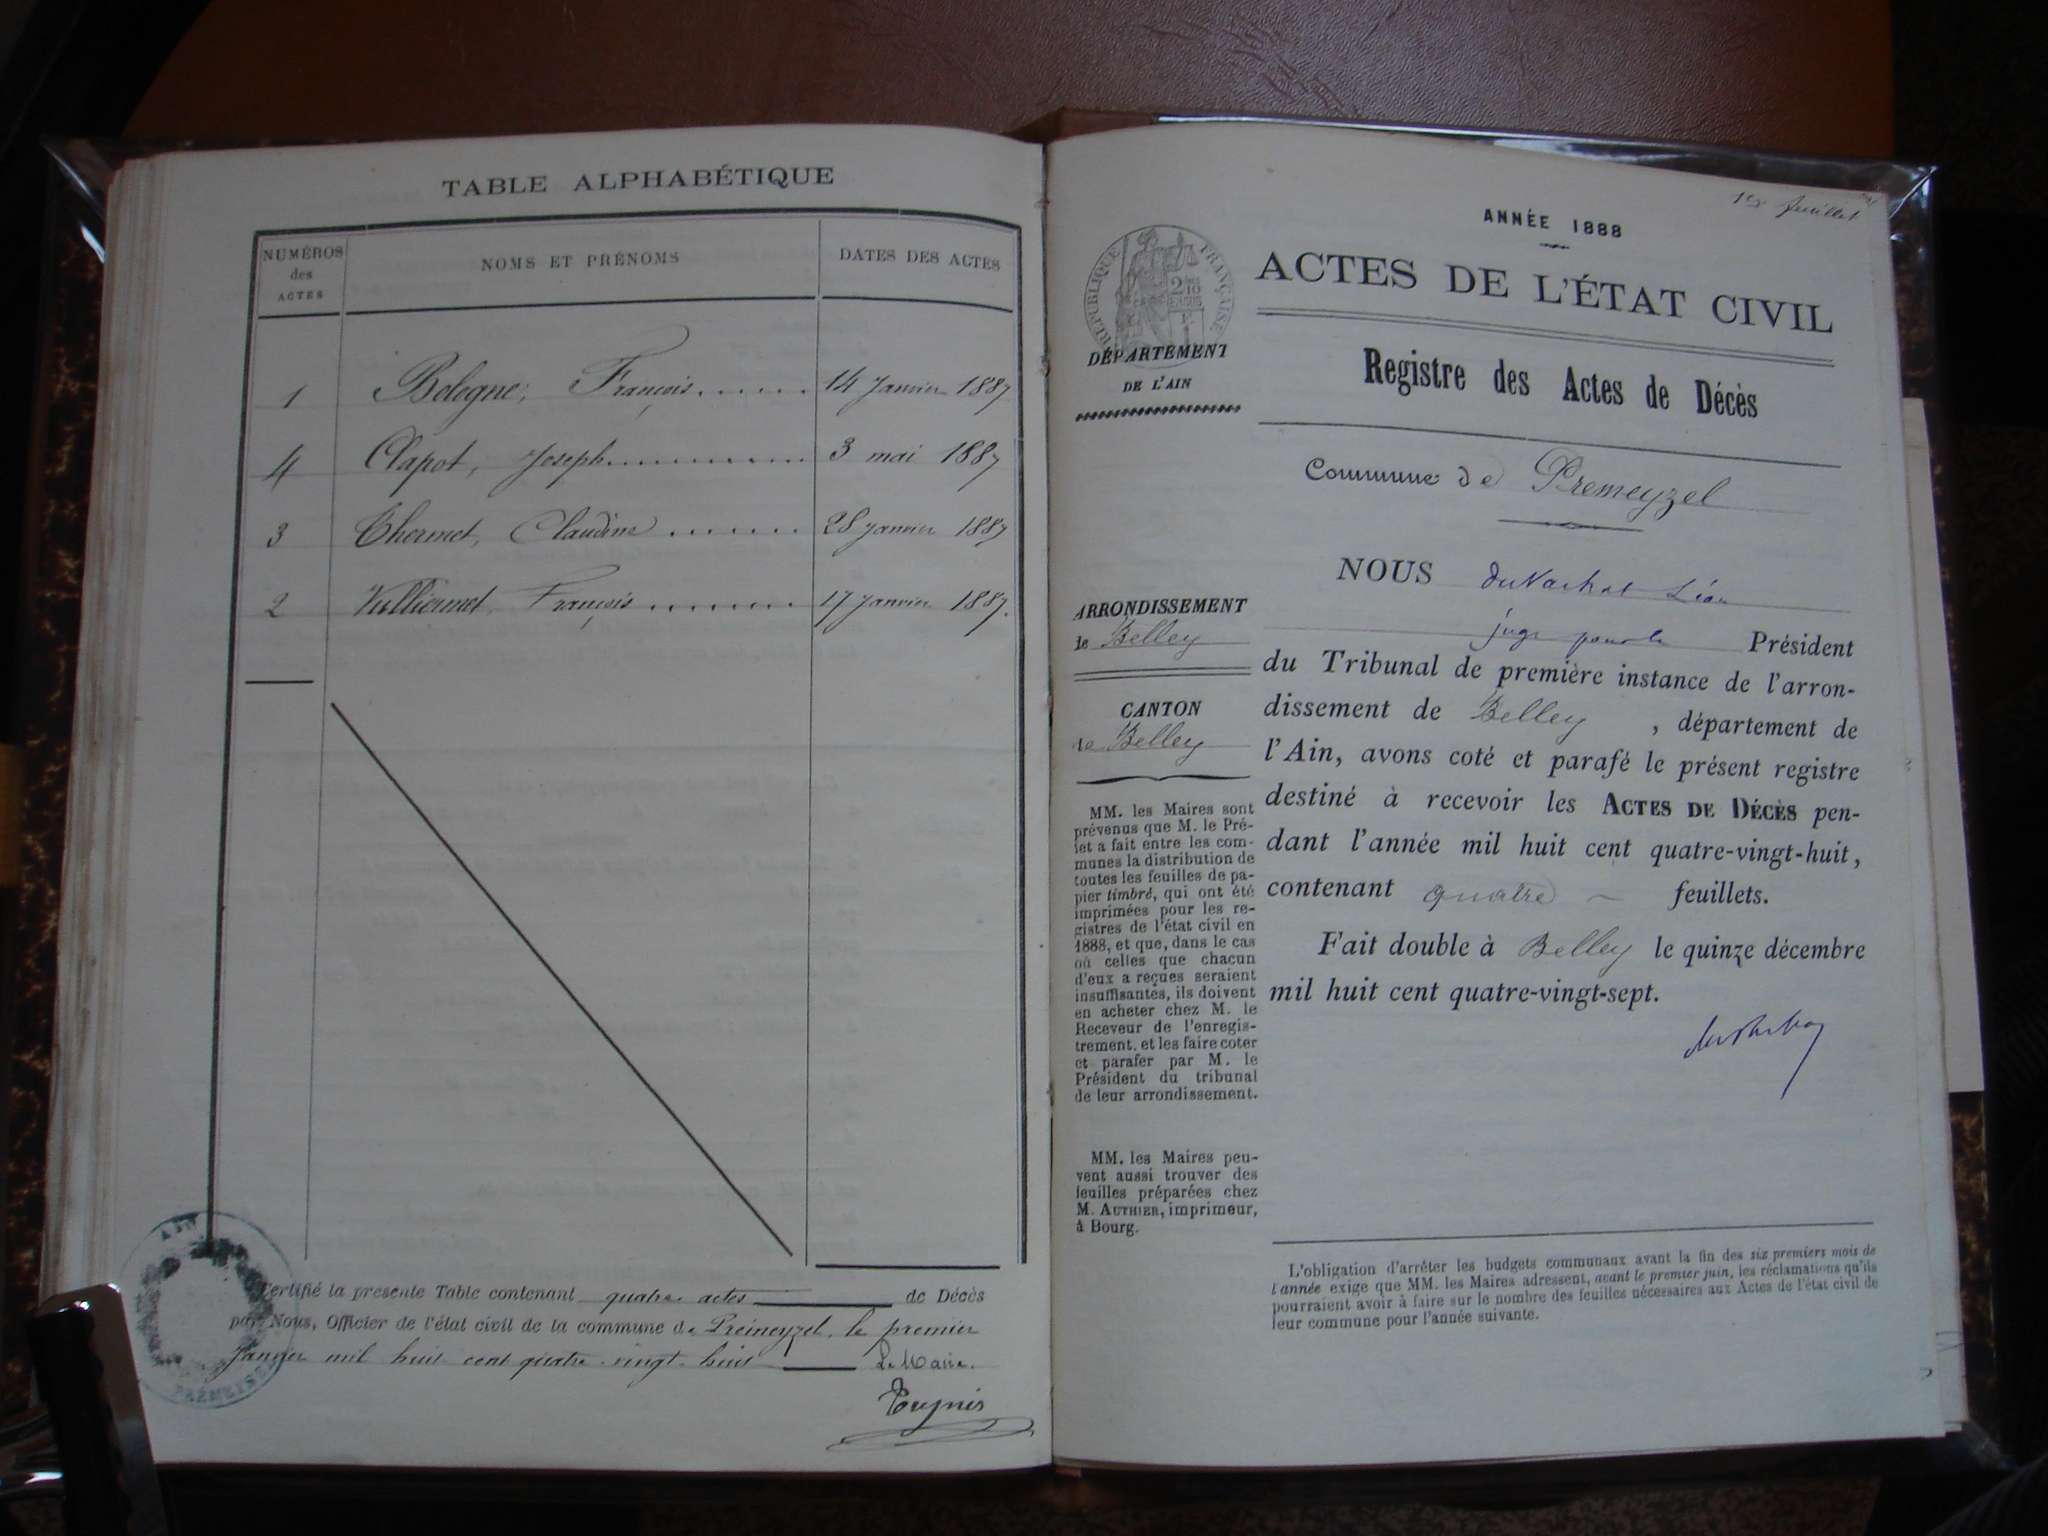 TABLE ALPHABÉTIQUE
NUMÉROS
des
ACTES
NOMS ET PRÉNOMS
DATES DES ACTES
1 Bologne, François 14 Janvier 1887
4 Clapot, Joseph 3 mai 1887
3 Thermet, Claudine 28 Janvier 1887
2 Vulliermet, François 17 Janvier 1887.
Certifié la présente Table contenant quatre actes de Décès
par Nous, Officier de l'état civil de la commune de Prémeyzel, le premier
Janvier mil huit cent quatre-vingt-huit Le Maire.
AIN
1er feuillet
ANNÉE 1888
ACTES DE L'ÉTAT CIVIL
Registre des Actes de Décès
Commune de Premeyzel
RÉPUBLIQUE FRANÇAISE
DÉPARTEMENT
DE L'AIN
ARRONDISSEMENT
de Belley
CANTON
de Belley
MM. les Maires sont
prévenus que M. le Pré-
fet a fait entre les com-
munes la distribution de
toutes les feuilles de pa-
pier timbré, qui ont été
imprimées pour les re-
gistres de l'état civil en
1888, et que, dans le cas
où celles que chacun
d'eux a reçues seraient
insuffisantes, ils doivent
en acheter chez M. le
Receveur de l'enregis-
trement, et les faire coter
et parafer par M. le
Président du tribunal
de leur arrondissement.
MM. les Maires peu-
vent aussi trouver des
feuilles préparées chez
M. AUTHIER, imprimeur,
à Bourg.
NOUS Léon
juge pour le Président
du Tribunal de première instance de l'arron-
dissement de Belley, département de
l'Ain, avons coté et parafé le présent registre
destiné à recevoir les ACTES DE DÉCÈS pen-
dant l'année mil huit cent quatre-vingt-huit,
contenant quatre feuillets.
Fait double à Belley le quinze décembre
mil huit cent quatre-vingt-sept.
L'obligation d'arrêter les budgets communaux avant la fin des six premiers mois de
l'année exige que MM. les Maires adressent, avant le premier juin, les réclamations qu'ils
pourraient avoir à faire sur le nombre des feuilles nécessaires aux Actes de l'état civil de
leur commune pour l'année suivante.